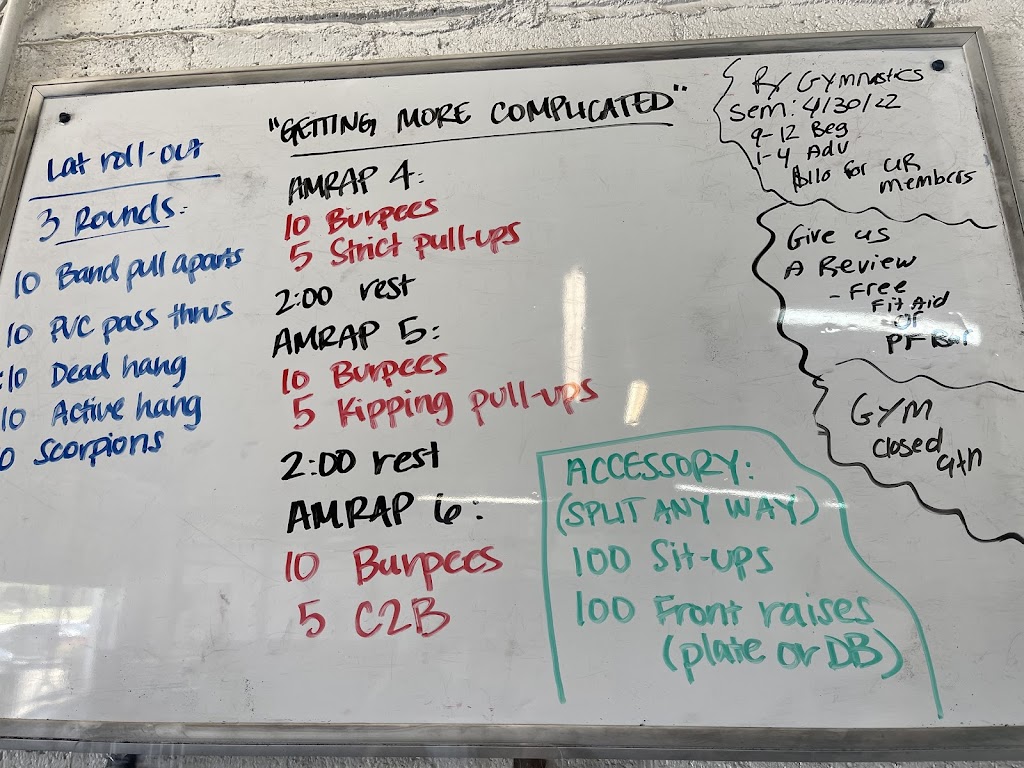 Lat roll-out
3 Rounds:
10 Band pull aparts
10 PVC pass thrus
:10 Dead hang
10 Active hang
0 Scorpions
"GETTING MORE COMPLICATED"
AMRAP 4:
10 Burpees
5 Strict pull-ups
2:00 rest
AMRAP 5:
10 Burpees
5 Kipping pull-ups
2:00 rest
AMRAP 6:
10 Burpees
5 C2B
ACCESSORY:
(SPLIT ANY WAY)
100 Sit-ups
100 Front raises
(plate or DB)
Rx GYMNASTICS
Sem: 4/30/22
9-12 Beg
1-4 Adv
for UR
members
Give us
A Review
- Free
Fit Aid
or
PF Bar
GYM
closed
9th